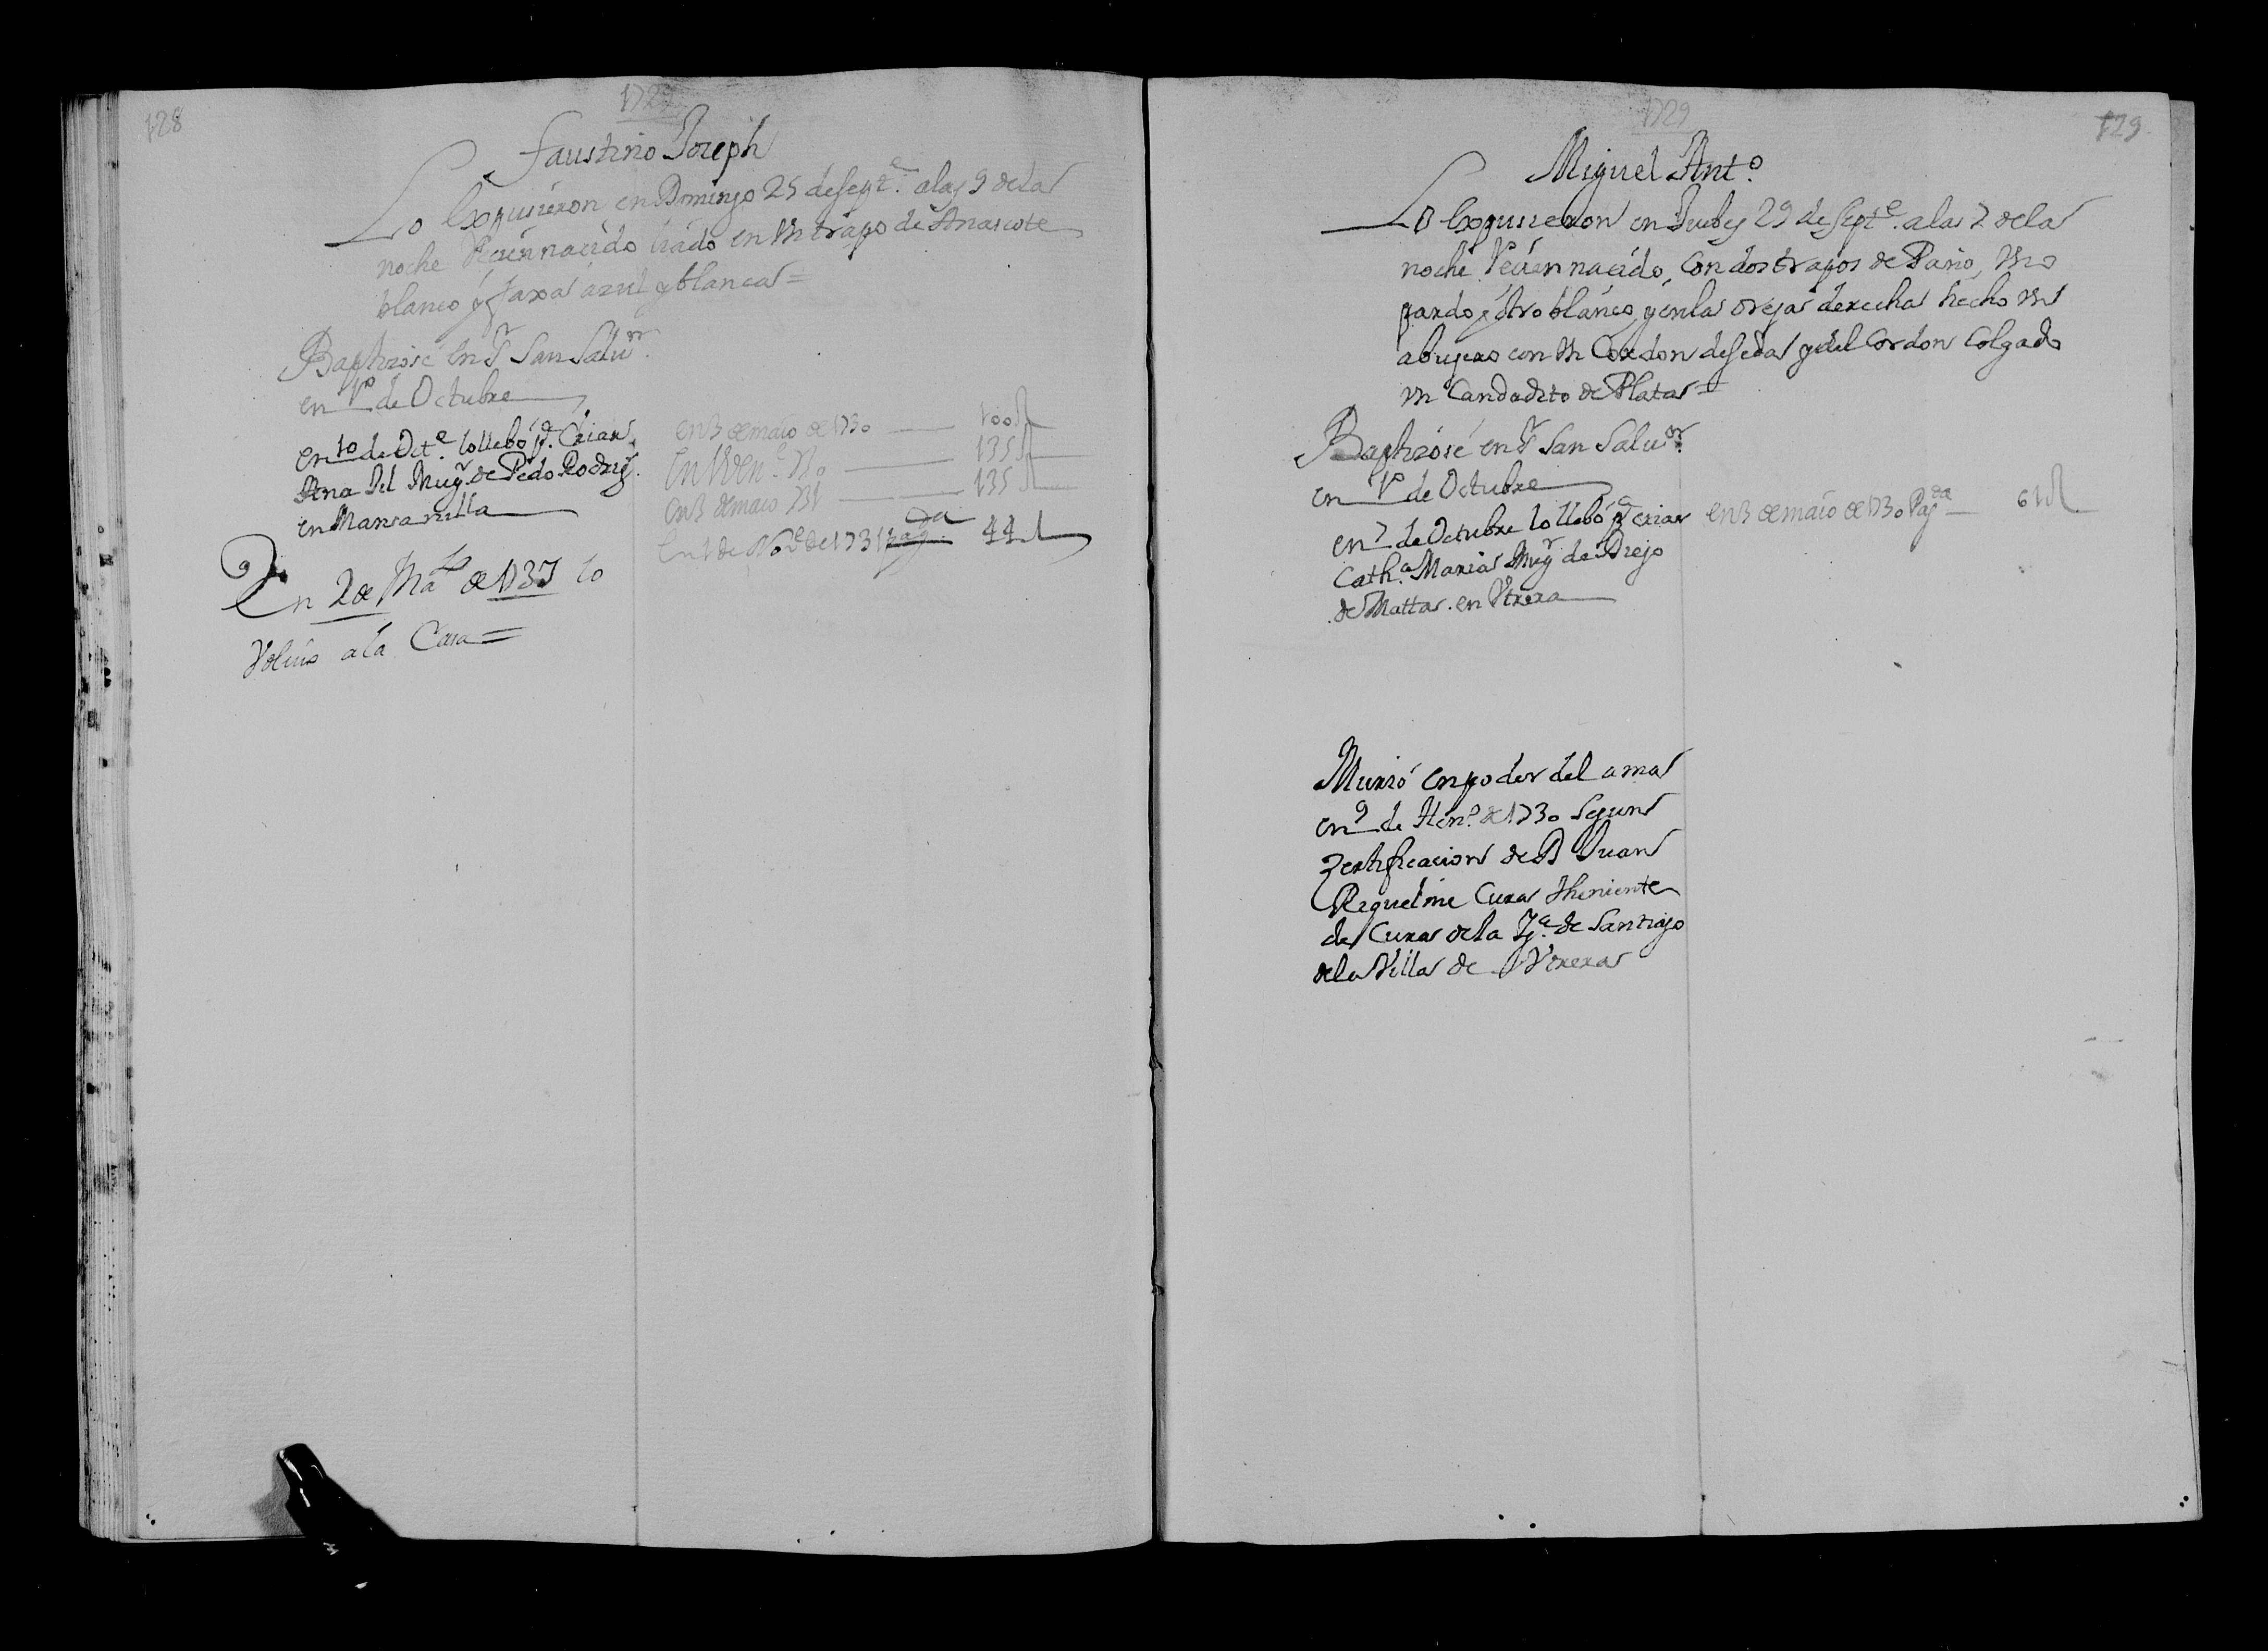 128
1729
Faustino Joseph
Lo Expusieron en Domingo 25 de sept.e a las 9 de la
noche Recien nacido liado en un trapo de Anascote
blanco y faxa azul y blanca =
Baptizose en Sr San Salu.or
en 1o de Octubre
en 10 de Oct.e lo llebó pa. Criar
Ana Mug.r de Pedo Rodrig.
en Mansanilla
En 2 de Ma.zo de 1737 lo
Voluio a la Casa =
en 3 de maio de 1730 100 R
135 R
en 3 de maio 731 135 R
en 1 de No.e de 1731 pag.da 44 R
1729
129
Miguel Ant.o
Lo Expusieron en Juebes 29 de Sept.e a las 7 de la
noche Recien nacido, con dos trapos de Paño, Uno
pardo y otro blanco, y en la oreja derecha hecho un
abujero con un Cordon de seda y del Cordon Colgado
un Candadito de Plata =
Baptizose en Sr San Salu.or
en 1o de Octubre
en 7 de Octubre lo llebó pa criar
Cath.a Maria Mug.r de Diego
de Matta. en Utrera
en 3 de maio de 1730 Pag.da 61 R
Murió en poder del ama
en 9 de Hen.o de 1730 Segun
Zertificacion de D Juan
Requelme Cura theniente
de Cura de la Yg.a de Santiago
de la Villa de Utrera